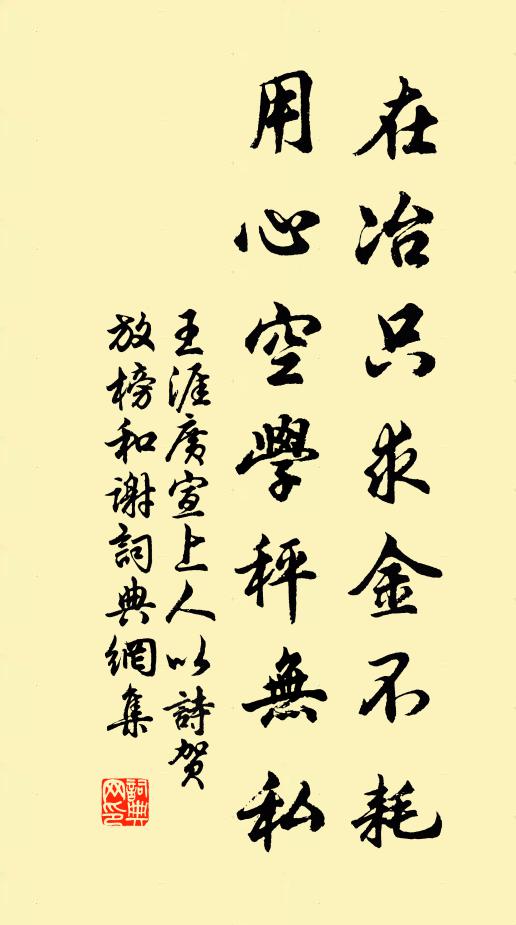 在冶只求金不耗
用心空學秤無私
王涯廣宣上人以詩賀
放榜和謝詞典網集
詞典网印